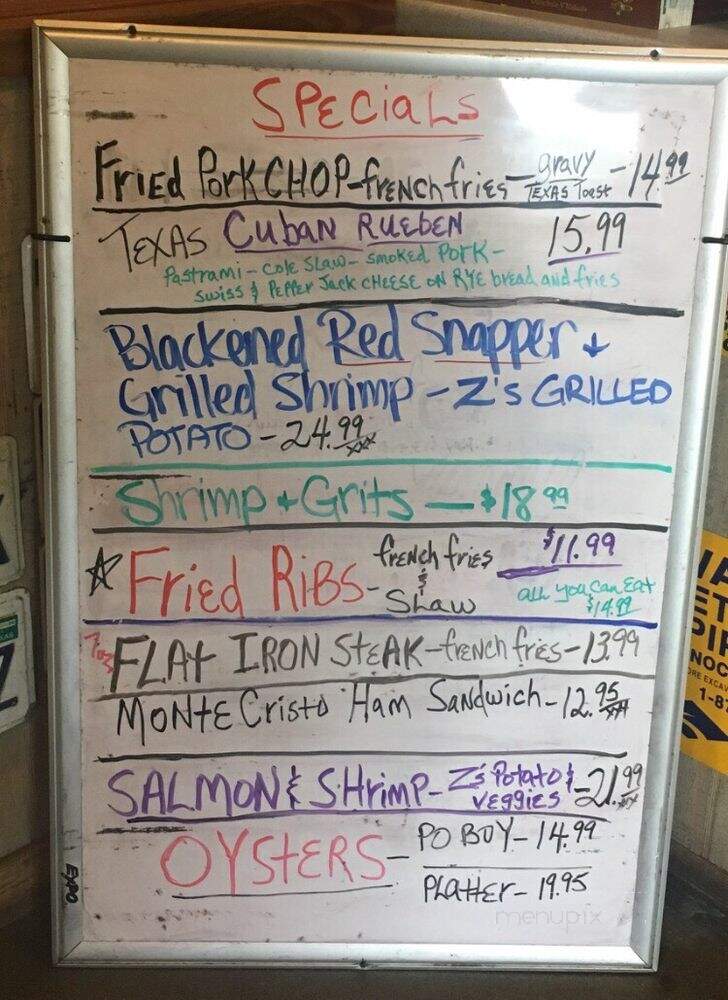 SPECiaLS
FRIED PORK CHOP-frENCH fries - gravy - 14.99
TEXAS Toast
TEXAS CUbAN RUEbEN 15.99
Pastrami - cole SLaw - smoked Pork -
swiss & PEPPEr Jack CHEESE oN RYE bread and fries
Blackened Red Snapper +
Grilled Shrimp - Z's GRILLED
POTATO - 24.99
Shrimp + Grits — $18.99
☆ Fried RiBS - french fries $11.99
& SLaw all you can Eat
$14.99
7oz FLAt IRON StEAK - french fries - 13.99
MONtE Cristo Ham Sandwich - 12.95
SALMON & SHrimp - Z's Potato & - 21.99
VEggiES
OYStERS - PO BOY - 14.99
PLattEr - 19.95
EXPO
menupix
NOC
1-8